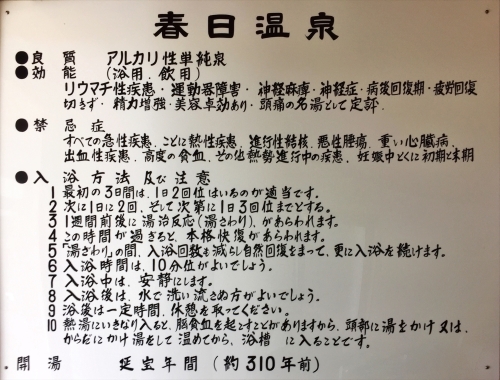 春日温泉
●良質 アルカリ性単純泉
●効能 (浴用.飲用)
リウマチ性疾患・運動器障害・神経麻痺・神経症・病後回復期・疲労回復
切きず・精力増強・美容卓効あり・頭痛の名湯として定評
●禁忌症
すべての急性疾患.ことに熱性疾患.進行性結核.悪性腫瘍.重い心臓病.
出血性疾患.高度の貧血.その他熱勢進行中の疾患.妊娠中とくに初期と末期
●入浴方法及び注意
1 最初の3日間は、1日2回位はいるのが適当です。
2 次に1日に2回、そして次第に1日3回位までとする。
3 1週間前後に湯治反応(湯さわり)、があらわれます。
4 この時間が過ぎると、本格快復があらわれます。
5 「湯ざわり」の間、入浴回数も減らし自然回復をまって、更に入浴を続けます。
6 入浴時間は、10分位がよいでしょう。
7 入浴中は、安静にします。
8 入浴後は、水で洗い流さぬ方がよいでしょう。
9 浴後は一定時間、休憩を取ってください。
10 熱湯にいきなり入ると、脳貧血を起こすことがありますから、頭部に湯をかけ又は、
からだにかけ湯をして温めてから、浴槽に入ることです。
開湯 延宝年間(約310年前)